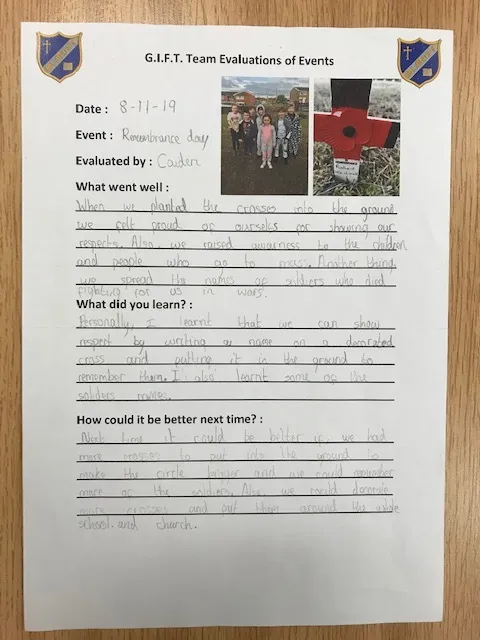 G.I.F.T. Team Evaluations of Events
Date : 8-11-19
Event : Remembrance day
Evaluated by : Caiden
What went well :
When we planted the crosses into the ground
we felt proud of ourselfs for showing our
respects. Also, we raised awarness to the children
and people who go to mass. Another thing,
we spread the names of soldiers who died
fighting for us in wars.
What did you learn? :
Personally, I learnt that we can show
respect by writing a name on a decorated
cross and putting it in the ground to
remember them. I also learnt some of the
soldiers names.
How could it be better next time? :
Next time it could be better if we had
more crosses to put into the ground to
make the circle bigger and we could remember
more of the soldiers. Also, we could decorate
more crosses and put them around the whole
school and church.